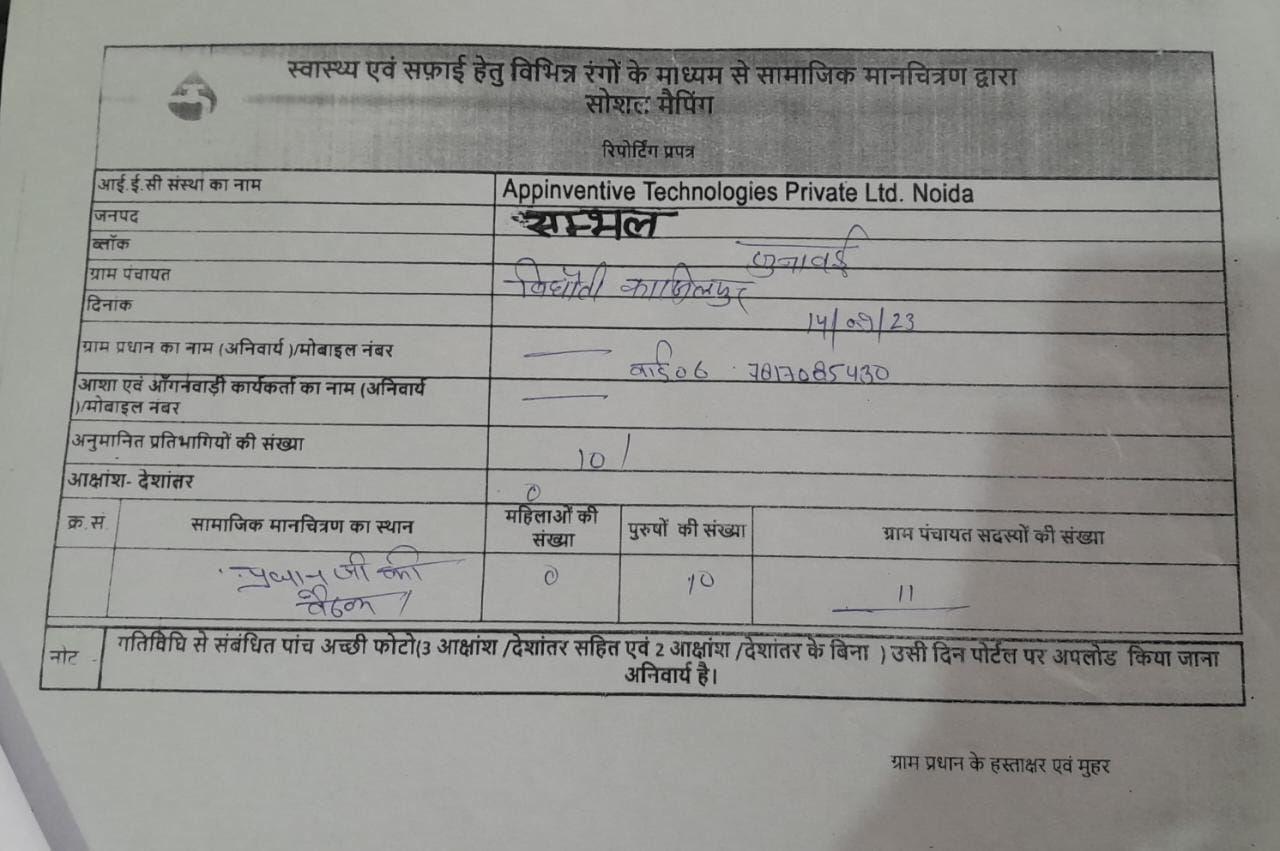 स्वास्थ्य एवं सफ़ाई हेतु विभिन्न रंगों के माध्यम से सामाजिक मानचित्रण द्वारा
सोशल मैपिंग
रिपोर्टिंग प्रपत्र
आई.ई.सी संस्था का नाम Appinventive Technologies Private Ltd. Noida
जनपद सम्भल
ब्लॉक जुनावई
ग्राम पंचायत
दिनांक 14/09/23
ग्राम प्रधान का नाम (अनिवार्य )/मोबाइल नंबर
7817085430
आशा एवं आँगनवाड़ी कार्यकर्ता का नाम (अनिवार्य
)/मोबाइल नंबर
अनुमानित प्रतिभागियों की संख्या 10
आक्षांश- देशांतर 0
क्र.सं. सामाजिक मानचित्रण का स्थान महिलाओं की संख्या पुरुषों की संख्या ग्राम पंचायत सदस्यों की संख्या
प्रधान जी की 0 10 11
बैठक
नोट - गतिविधि से संबंधित पांच अच्छी फोटो(3 आक्षांश /देशांतर सहित एवं 2 आक्षांश /देशांतर के बिना ) उसी दिन पोर्टल पर अपलोड किया जाना
अनिवार्य है।
ग्राम प्रधान के हस्ताक्षर एवं मुहर